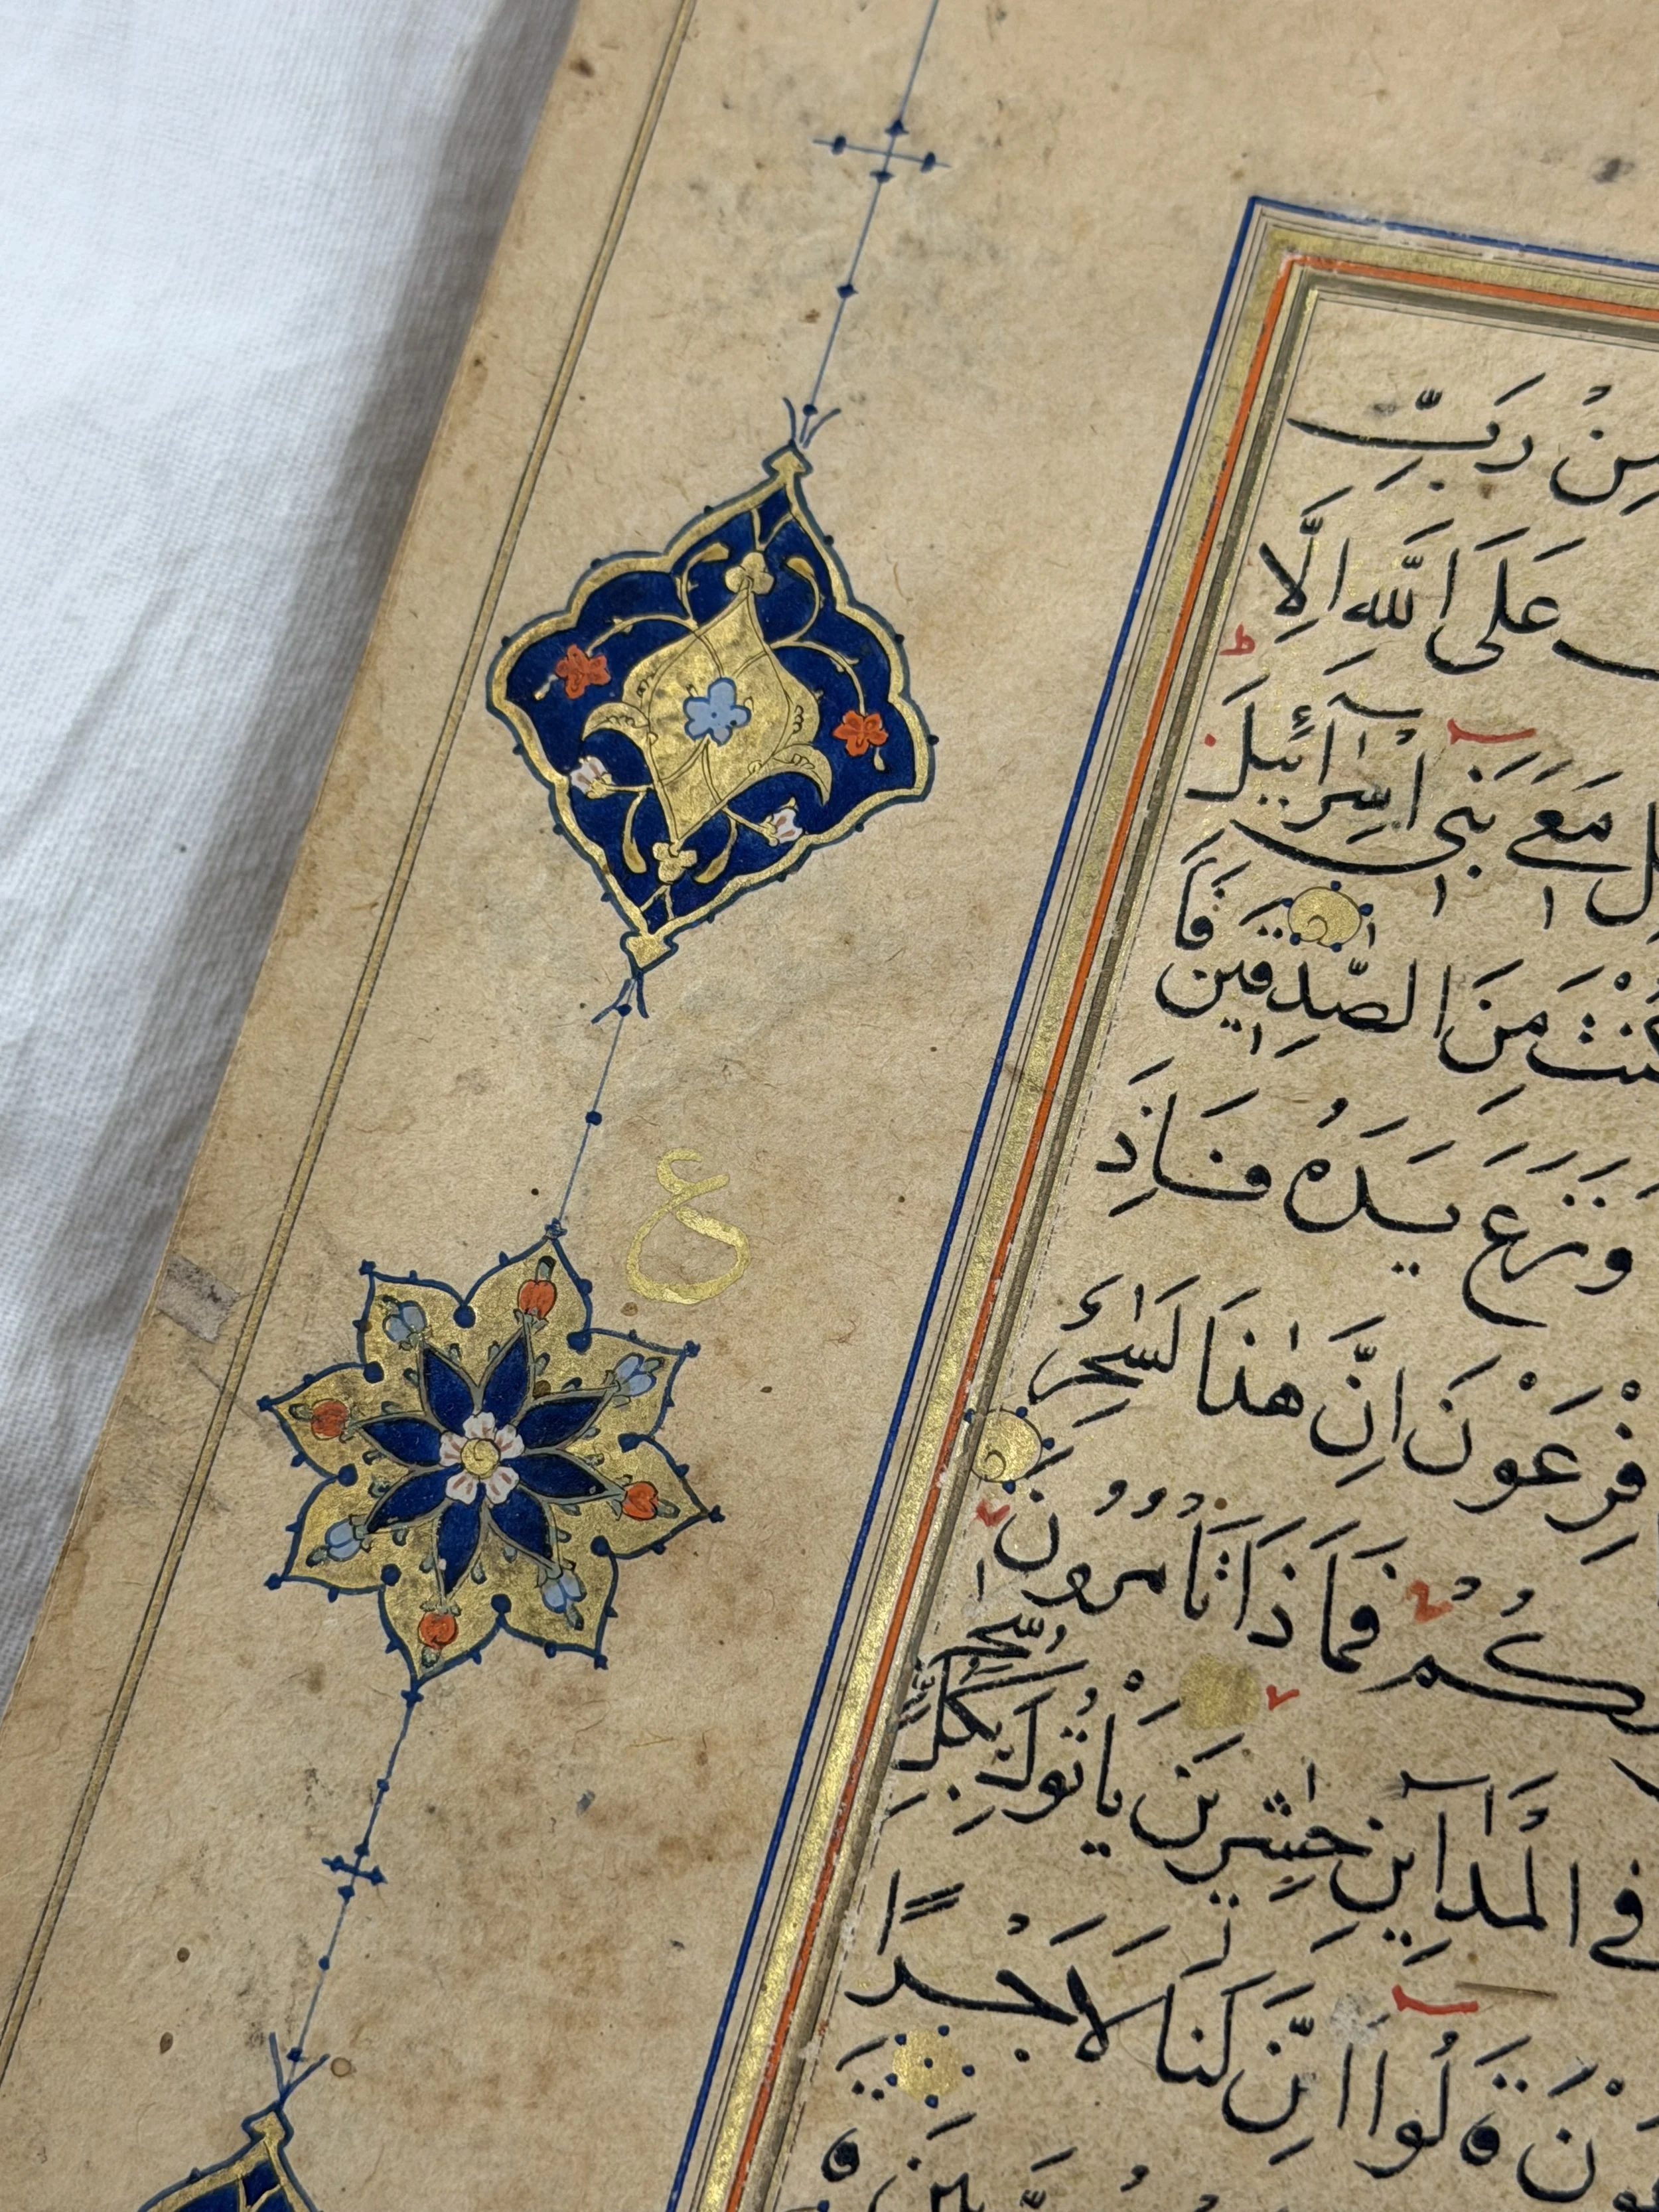 مِنْ رَبِّ
عَلَى اللّٰهِ اِلَّا
مَعِىَ بَنِىٓ اِسْرَآئِيلَ
كُنْتَ مِنَ الصّٰدِقِينَ فَاَ
وَنَزَعَ يَدَهُ فَاِذَ
ع
فِرْعَوْنَ اِنَّ هٰذَا لَسٰحِرٌ
كُمْ فَمَاذَا تَاْمُرُونَ
فِى الْمَدَآئِنِ حٰشِرِينَ يَاْتُوكَ بِكُلِّ سٰحِرٍ
عَوْنَ قَالُوٓا اِنَّ لَنَا لَاَجْرًا